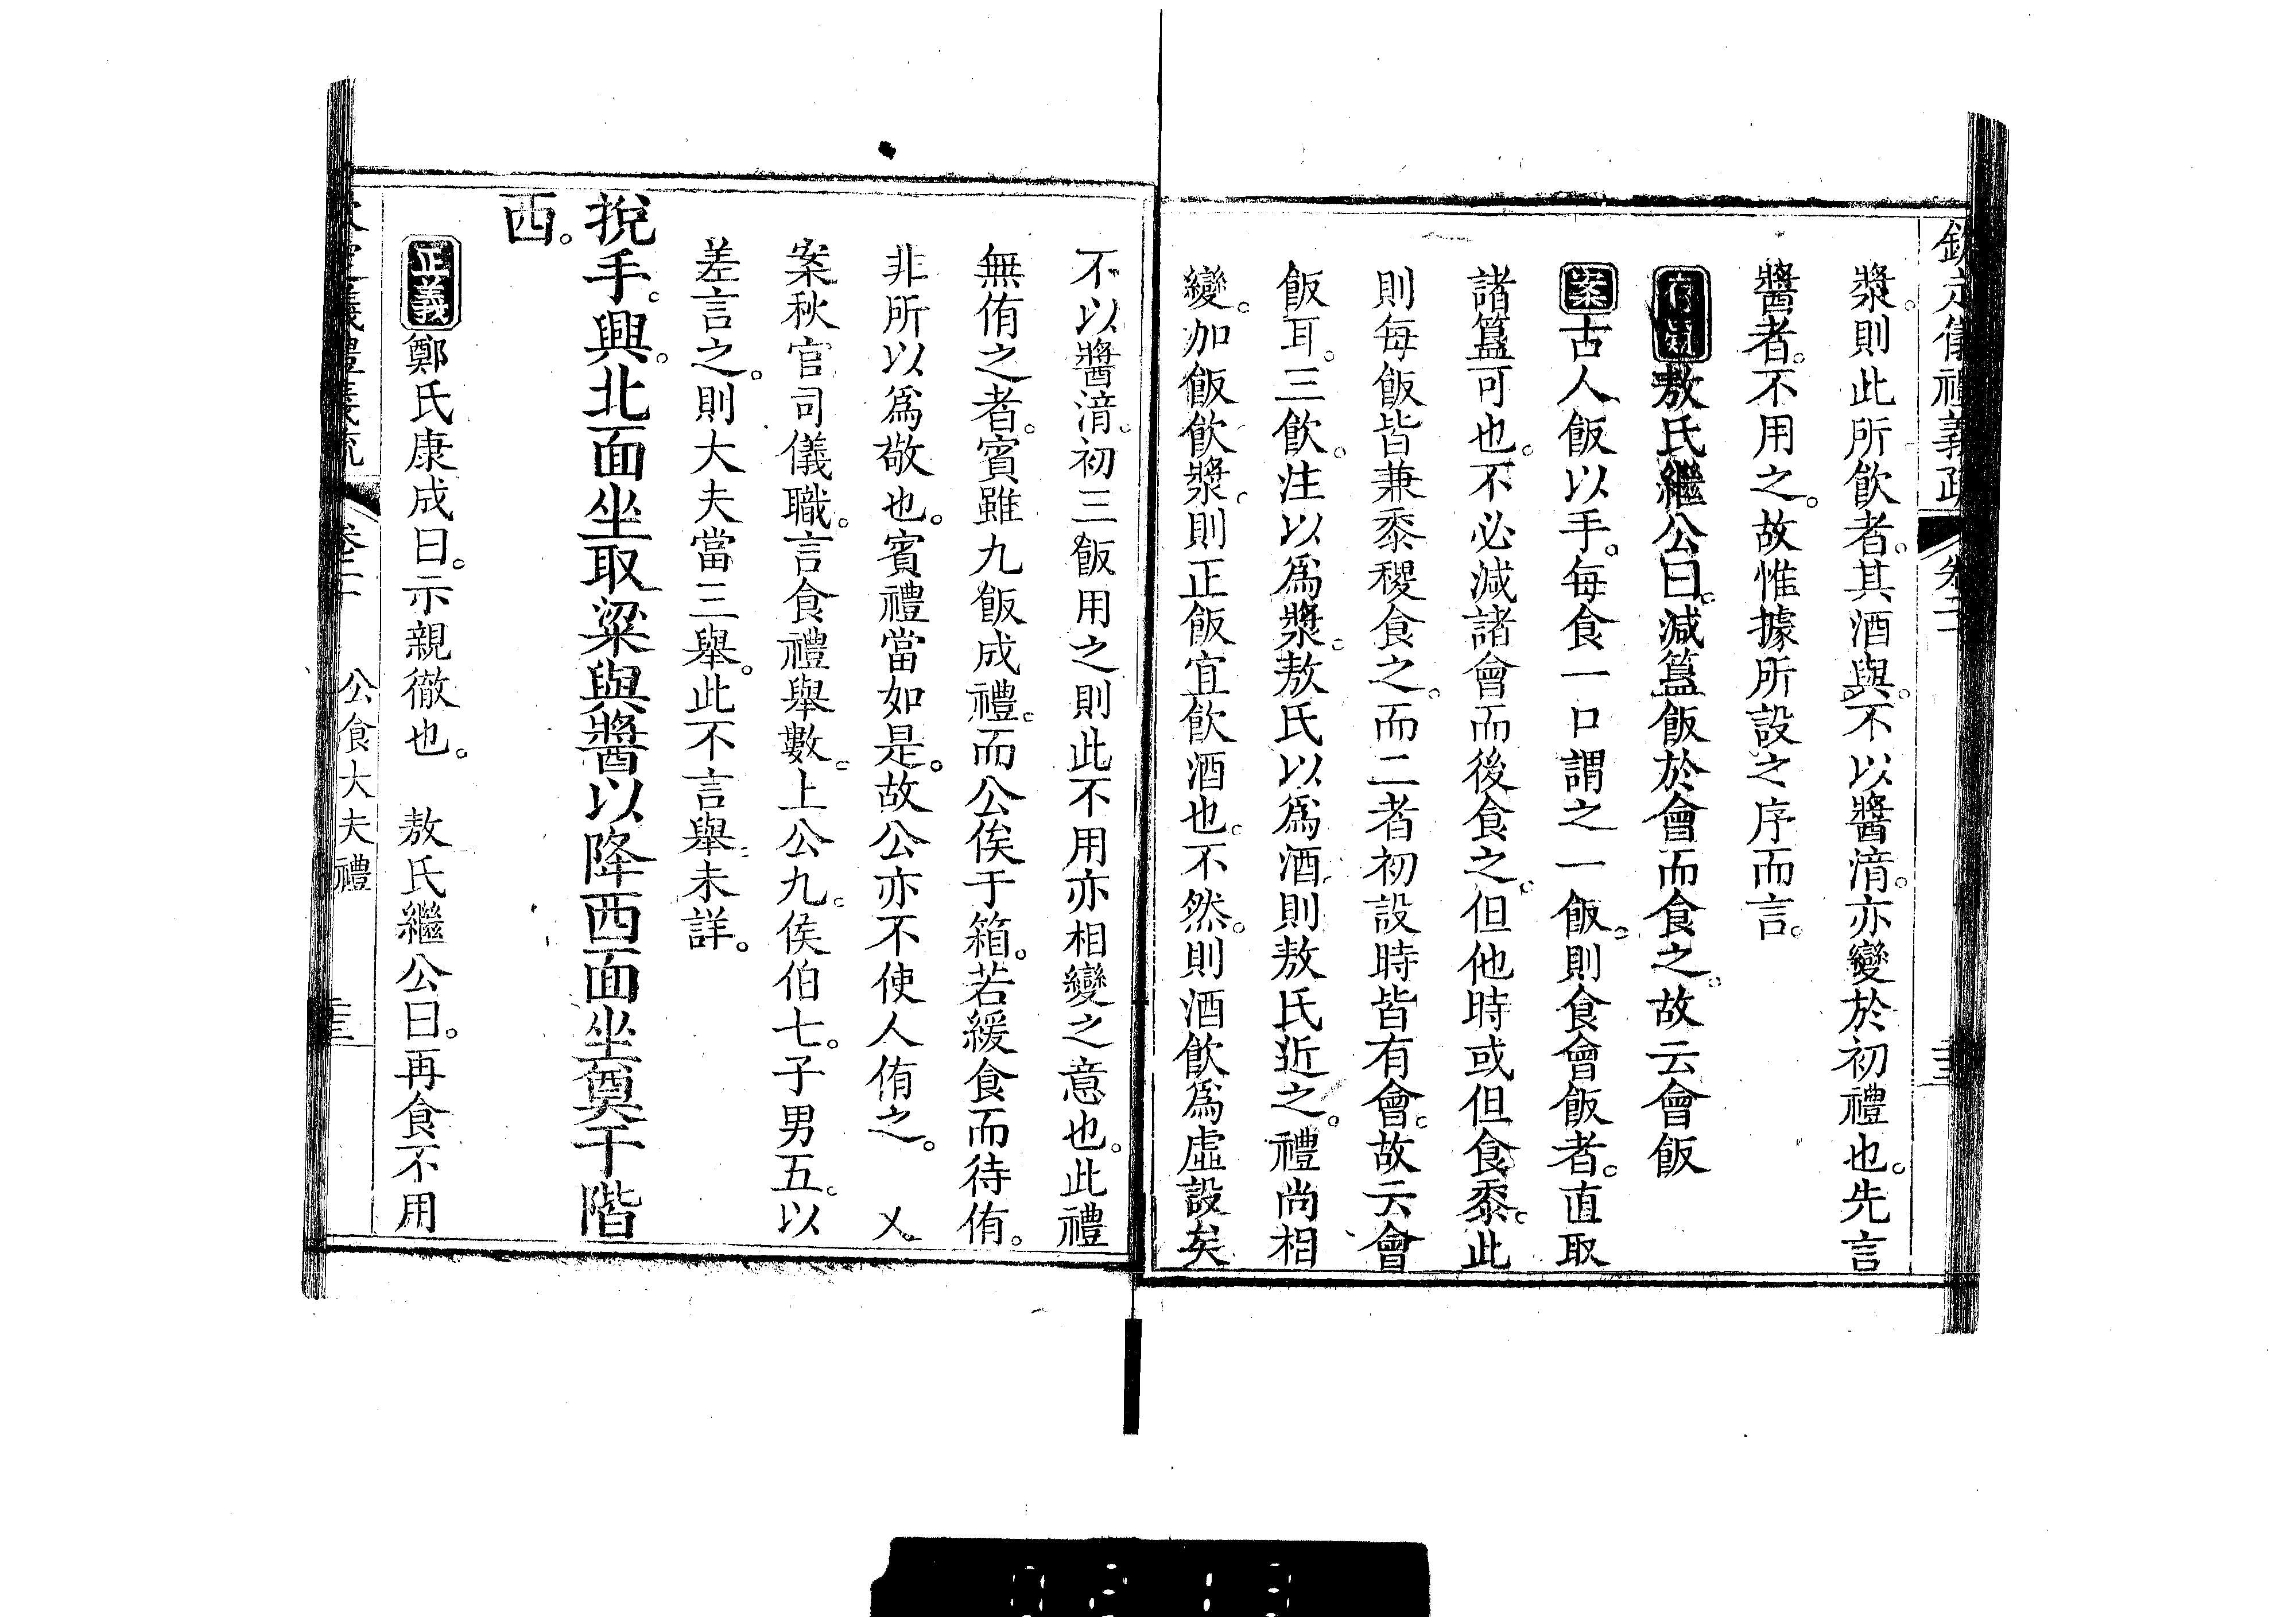 欽定儀禮義疏 卷二 公食大夫禮
漿。則此所飲者。其酒與。不以醬湆。亦變於初禮也。先言
醬者。不用之。故惟據所設之序而言。
存疑敖氏繼公曰。減簋飯於會而食之。故云會飯
案古人飯以手。每食一口謂之一飯。則食會飯者。直取
諸簋可也。不必減諸會而後食之。但他時或但食黍。此
則每飯皆兼黍稷食之。而二者初設時皆有會。故云會
飯耳。三飲。注以為漿。敖氏以為酒。則敖氏近之。禮尚相
變。加飯飲漿。則正飯宜飲酒也。不然。則酒飲為虛設矣
不以醬湆。初三飯用之則此不用亦相變之意也。此禮
無侑之者。賓雖九飯成禮。而公俟于箱。若緩食而待侑。
非所以為敬也。賓禮當如是。故公亦不使人侑之。 又
案秋官司儀職。言食禮舉數。上公九。侯伯七。子男五。以
差言之。則大夫當三舉。此不言舉。未詳。
挩手。興。北面坐取粱與醬以降西面坐奠于階
西。
正義鄭氏康成曰。示親徹也。 敖氏繼公曰。再食不用
公食大夫禮